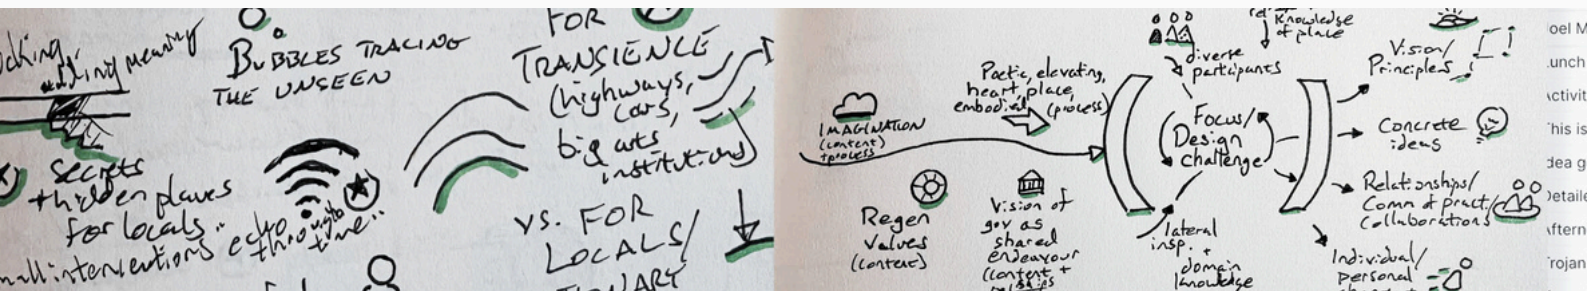 adding meaning
BUBBLES TRACING
THE UNSEEN
secrets
+ hidden places
for locals..
echo
through
time..
FOR
TRANSIENCE
(highways,
cars,
big arts
institutions)
vs. FOR
LOCALS/
IMAGINATION
(content)
+ process
Poetic, elevating,
heart, place,
embodied (process)
Regen
values
(content)
Vision of
gov as
shared
endeavour
(content +
diverse
participants
knowledge
of place
Focus/
Design
challenge
lateral
insp.
+
domain
knowledge
Vision/
Principles
Concrete
ideas
Relationships/
Comm of pract/
Collaborations
Individual/
personal